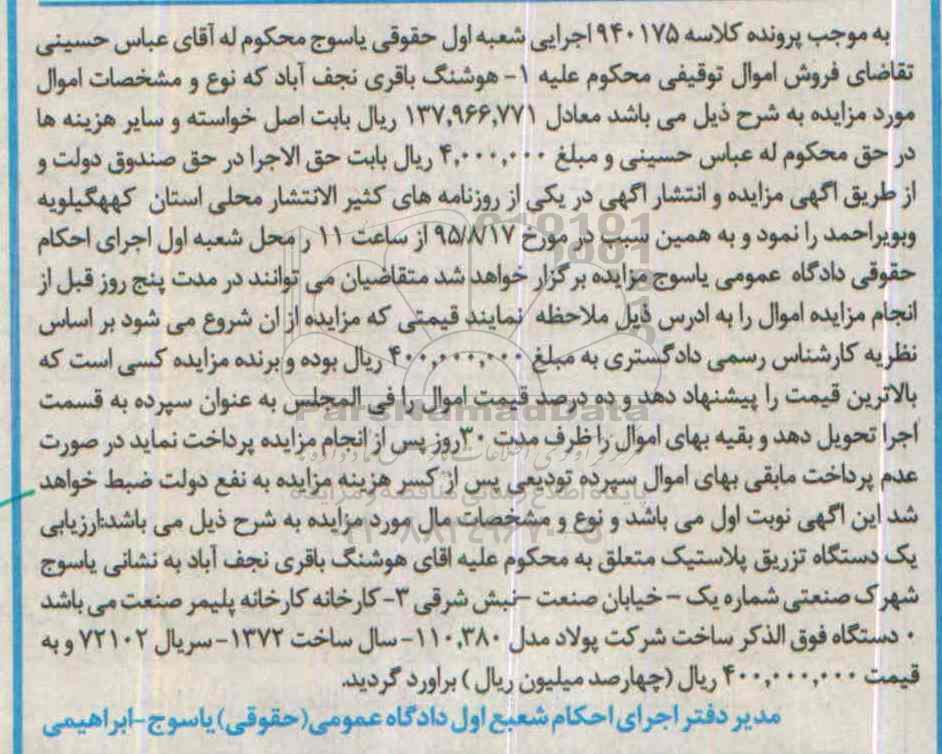 به موجب پرونده کلاسه ۹۴۰۱۷۵ اجرایی شعبه اول حقوقی یاسوج محکوم له آقای عباس حسینی
تقاضای فروش اموال توقیفی محکوم علیه ۱- هوشنگ باقری نجف آباد که نوع و مشخصات اموال
مورد مزایده به شرح ذیل می باشد معادل ۱۳۷,۹۶۶,۷۷۱ ریال بابت اصل خواسته و سایر هزینه ها
در حق محکوم له عباس حسینی و مبلغ ۴,۰۰۰,۰۰۰ ریال بابت حق الاجرا در حق صندوق دولت و
از طریق اگهی مزایده و انتشار اگهی در یکی از روزنامه های کثیر الانتشار محلی استان کهگیلویه
وبویراحمد را نمود و به همین سبب در مورخ ۹۵/۸/۱۷ از ساعت ۱۱ ر محل شعبه اول اجرای احکام
حقوقی دادگاه عمومی یاسوج مزایده برگزار خواهد شد متقاضیان می توانند در مدت پنج روز قبل از
انجام مزایده اموال را به ادرس ذیل ملاحظه نمایند قیمتی که مزایده از ان شروع می شود بر اساس
نظریه کارشناس رسمی دادگستری به مبلغ ۴۰۰,۰۰۰,۰۰۰ ریال بوده و برنده مزایده کسی است که
بالاترین قیمت را پیشنهاد دهد و ده درصد قیمت اموال را فی المجلس به عنوان سپرده به قسمت
اجرا تحویل دهد و بقیه بهای اموال را ظرف مدت ۳۰روز پس از انجام مزایده پرداخت نماید در صورت
عدم پرداخت مابقی بهای اموال سپرده تودیعی پس از کسر هزینه مزایده به نفع دولت ضبط خواهد
شد این اگهی نوبت اول می باشد و نوع و مشخصات مال مورد مزایده به شرح ذیل می باشد:ارزیابی
یک دستگاه تزریق پلاستیک متعلق به محکوم علیه اقای هوشنگ باقری نجف آباد به نشانی یاسوج
شهرک صنعتی شماره یک – خیابان صنعت –نبش شرقی ۳- کارخانه کارخانه پلیمر صنعت می باشد
۰ دستگاه فوق الذکر ساخت شرکت پولاد مدل ۱۱۰,۳۸۰- سال ساخت ۱۳۷۲- سریال ۷۲۱۰۲ و به
قیمت ۴۰۰,۰۰۰,۰۰۰ ریال (چهارصد میلیون ریال ) براورد گردید.
مدیر دفتر اجرای احکام شعبع اول دادگاه عمومی(حقوقی) یاسوج-ابراهیمی
ParsNamadData